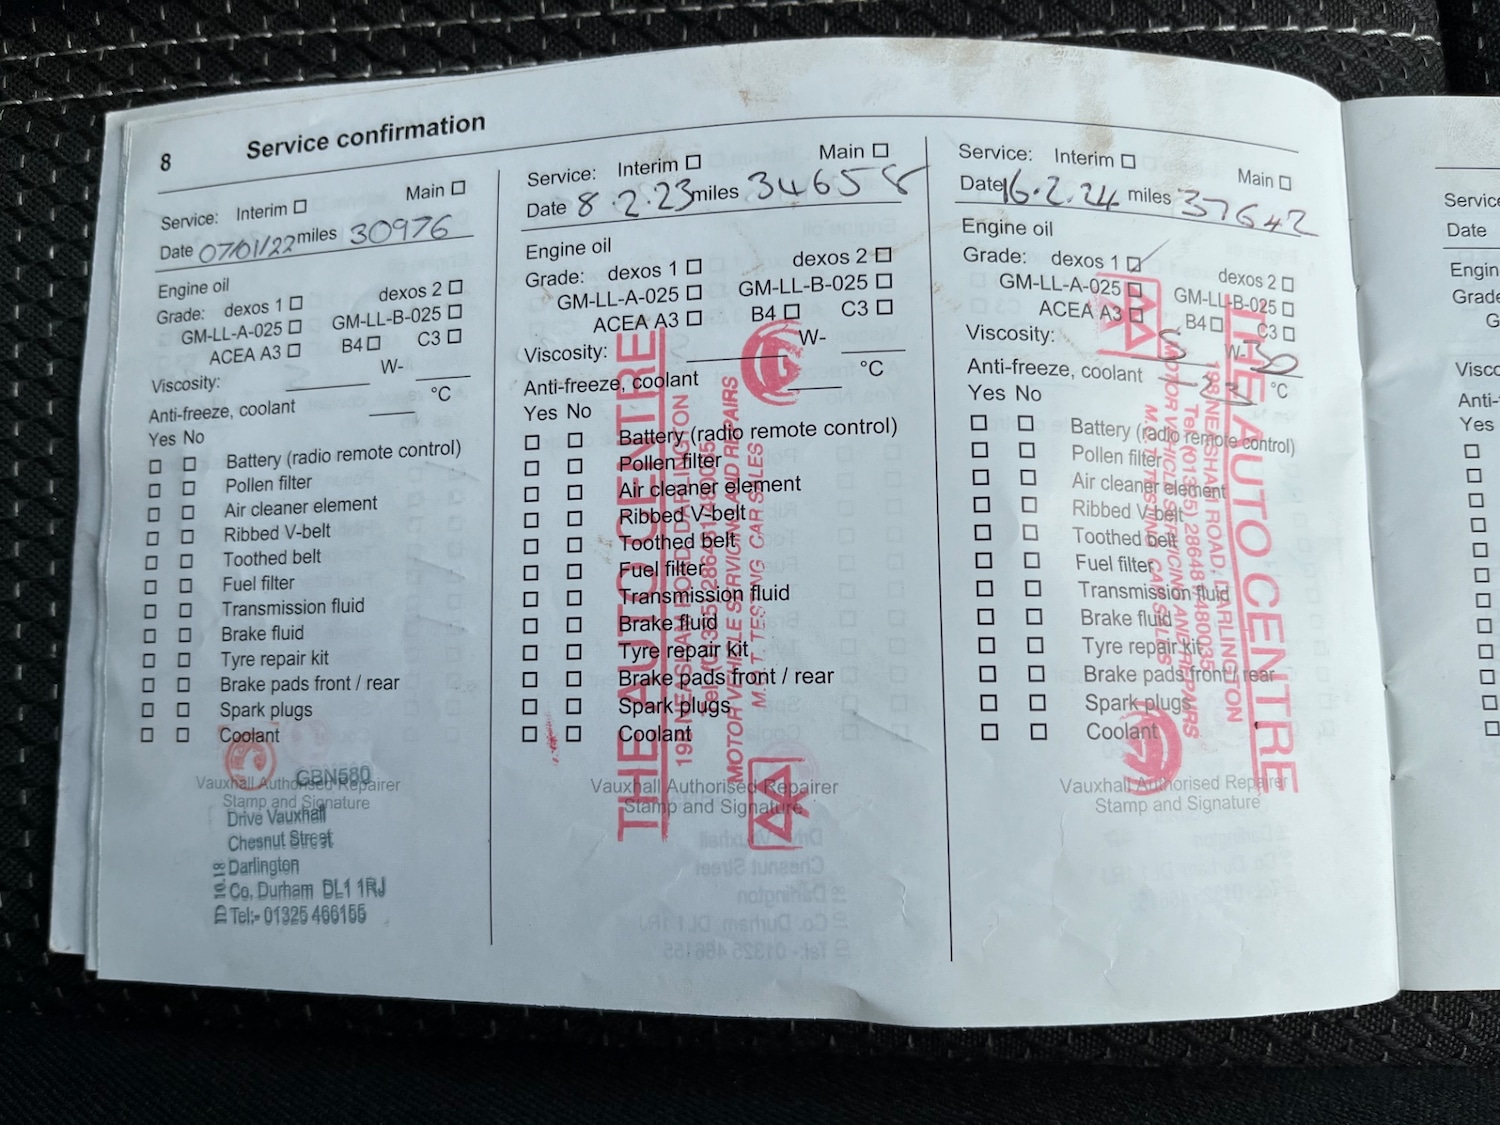 8 Service confirmation
Service: Interim Main
Date 07/01/22 miles 30976
Engine oil
Grade: dexos 1 dexos 2
GM-LL-A-025 GM-LL-B-025
ACEA A3 B4 C3
Viscosity: W-
Anti-freeze, coolant °C
Yes No
Battery (radio remote control)
Pollen filter
Air cleaner element
Ribbed V-belt
Toothed belt
Fuel filter
Transmission fluid
Brake fluid
Tyre repair kit
Brake pads front / rear
Spark plugs
Coolant
GBN580
Vauxhall Authorised Repairer
Stamp and Signature
Drive Vauxhall
Chesnut Street
Darlington
Co. Durham DL1 1RJ
Tel:- 01325 466155
Service: Interim Main
Date 8.2.23 miles 34658
Engine oil
Grade: dexos 1 dexos 2
GM-LL-A-025 GM-LL-B-025
ACEA A3 B4 C3
Viscosity: W-
Anti-freeze, coolant °C
Yes No
Battery (radio remote control)
Pollen filter
Air cleaner element
Ribbed V-belt
Toothed belt
Fuel filter
Transmission fluid
Brake fluid
Tyre repair kit
Brake pads front / rear
Spark plugs
Coolant
Vauxhall Authorised Repairer
Stamp and Signature
THE AUTO CENTRE
198 NEASHAM ROAD, DARLINGTON
Tel: (01325) 286481 480035
MOTOR VEHICLE SERVICING AND REPAIRS
M.O.T. TESTING CAR SALES
Service: Interim Main
Date 16.2.24 miles 37642
Engine oil
Grade: dexos 1 dexos 2
GM-LL-A-025 GM-LL-B-025
ACEA A3 B4 C3
Viscosity: 5 W- 30
Anti-freeze, coolant °C
Yes No
Battery (radio remote control)
Pollen filter
Air cleaner element
Ribbed V-belt
Toothed belt
Fuel filter
Transmission fluid
Brake fluid
Tyre repair kit
Brake pads front / rear
Spark plugs
Coolant
Vauxhall Authorised Repairer
Stamp and Signature
THE AUTO CENTRE
198 NEASHAM ROAD, DARLINGTON
Tel: (01325) 286481 480035
MOTOR VEHICLE SERVICING AND REPAIRS
M.O.T. TESTING CAR SALES
Service
Date
Engin
Grade
G
Visco
Anti-
Yes